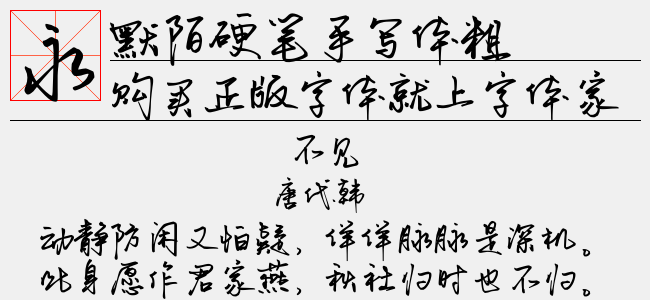 永
默陌硬笔手写体粗
购买正版字体就上字体家
不见
唐代.韩
动静防闲又怕疑，佯佯脉脉是深机。
此身愿作君家燕，秋社归时也不归。